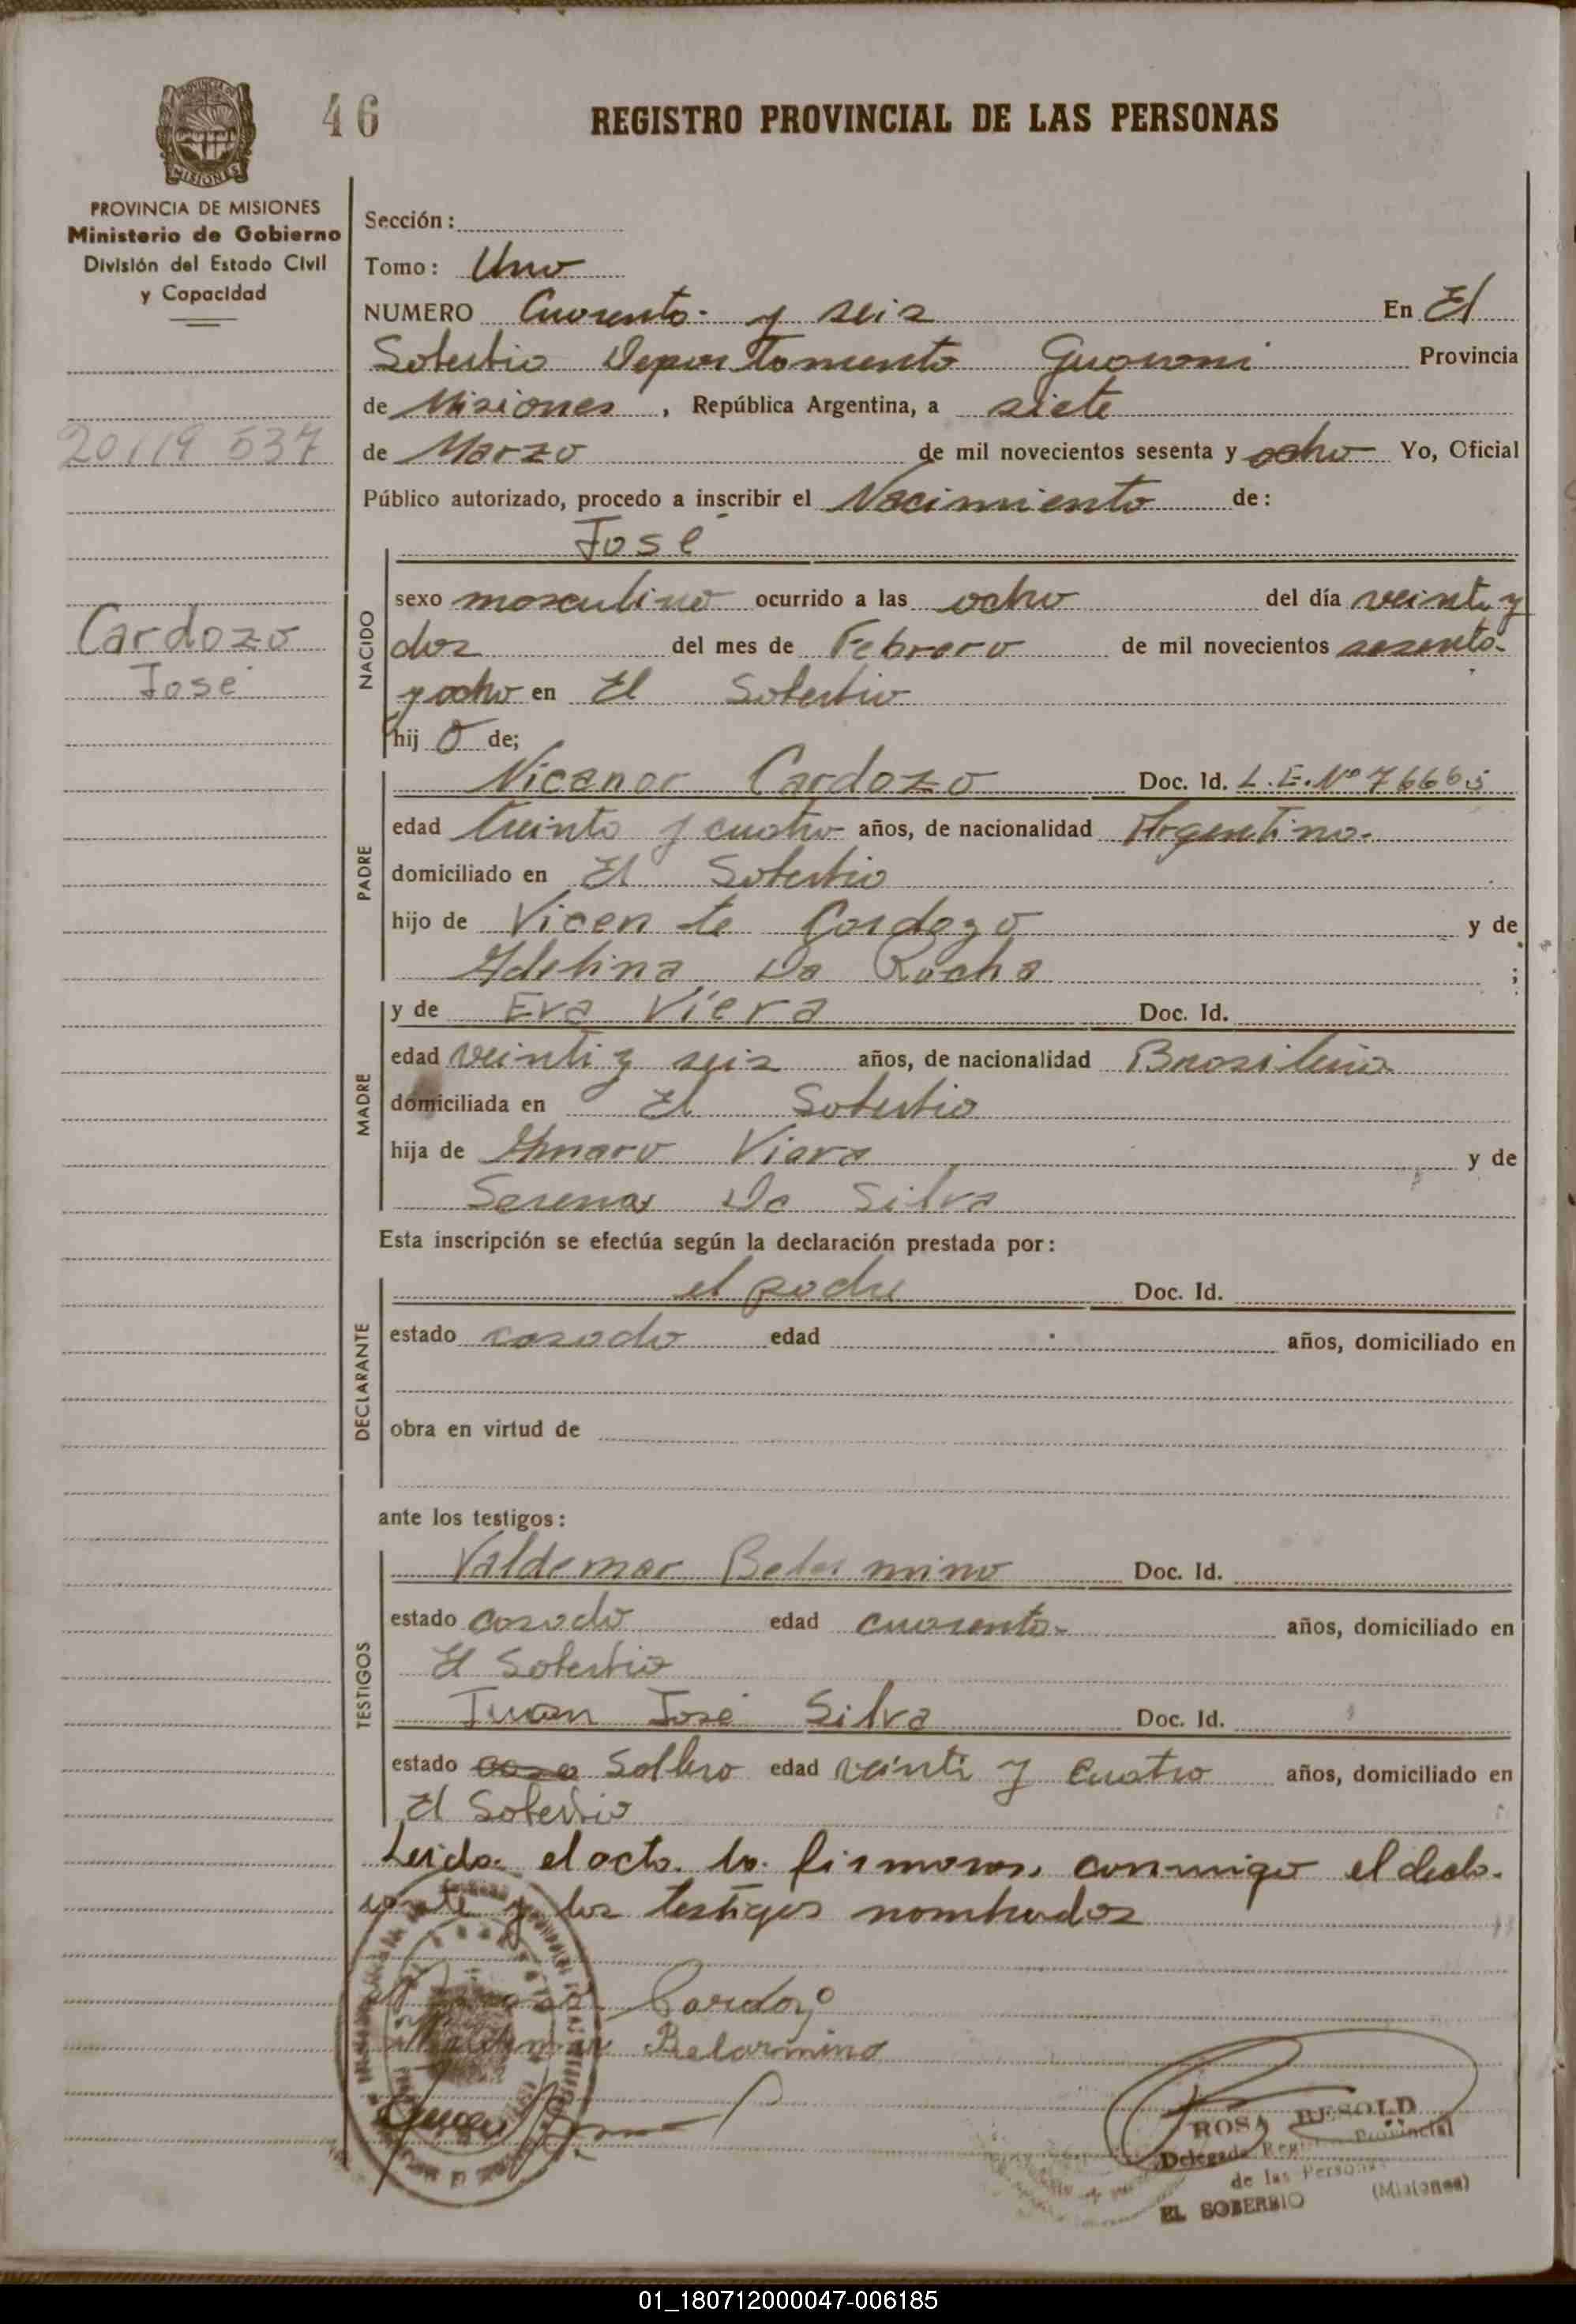 46
REGISTRO PROVINCIAL DE LAS PERSONAS
PROVINCIA DE MISIONES
MISIONES
PROVINCIA DE MISIONES
Ministerio de Gobierno
División del Estado Civil
y Capacidad
20119 537
Cardozo
José
Sección:
Tomo: Uno
NUMERO Cuarenta y seis En El
Soberbio Departamento Guarani Provincia
de Misiones, República Argentina, a siete
de Marzo de mil novecientos sesenta y ocho Yo, Oficial
Público autorizado, procedo a inscribir el Nacimiento de:
José
NACIDO
sexo masculino ocurrido a las ocho del día veinte y
dos del mes de Febrero de mil novecientos sesenta
y ocho en El Soberbio
hij o de;
PADRE
Nicanor Cardozo Doc. Id. L.E. Nº
edad treinta y cuatro años, de nacionalidad Argentina
domiciliado en El Soberbio
hijo de Vicente Cardozo y de
Adelina Da Rocha ;
MADRE
y de Eva Viera Doc. Id.
edad veinti y seis años, de nacionalidad Brasileña
domiciliada en El Soberbio
hija de Amaro Viera y de
Serena Da Silva
Esta inscripción se efectúa según la declaración prestada por:
DECLARANTE
el padre Doc. Id.
estado casado edad años, domiciliado en
obra en virtud de
ante los testigos:
TESTIGOS
Valdemar Belarmino Doc. Id.
estado casado edad cuarenta años, domiciliado en
El Soberbio
Juan José Silva Doc. Id.
estado Soltero edad veinti y cuatro años, domiciliado en
El Soberbio
Leida el acta la firmaron conmigo el decla-
rante y los testigos nombrados
Cardozo
Valdemar Belarmino
ROSA BESOLD
Delegada Registro Provincial
de las Personas
EL SOBERBIO (Misiones)
01_180712000047-006185